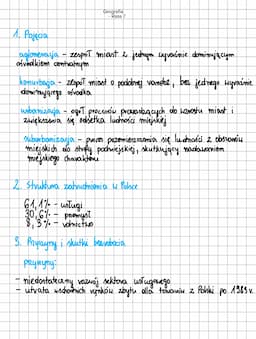 Geografia
- klasa 7
1. Pojęcia
aglomeracja - zespół miast z jednym wyraźnie dominującym
ośrodkiem centralnym
konurbacja - zespół miast o podobnej randze, bez jednego wyraźnie
dominującego ośrodka
urbanizacja - ogół procesów prowadzących do wzrostu miast i
zwiększenia się odsetka ludności miejskiej
suburbanizacja - proces przemieszczania się ludności z obszarów
miejskich do strefy podmiejskiej, skutkujący nadawaniem
miejskiego charakteru
2. Struktura zatrudnienia w Polsce
61,1% - usługi
30,6% - przemysł
8,3% - rolnictwo
3. Przyczyny i skutki bezrobocia
przyczyny:
- niedostateczny rozwój sektora usługowego
- utrata wschodnich rynków zbytu dla towarów z Polski po 1989 r.